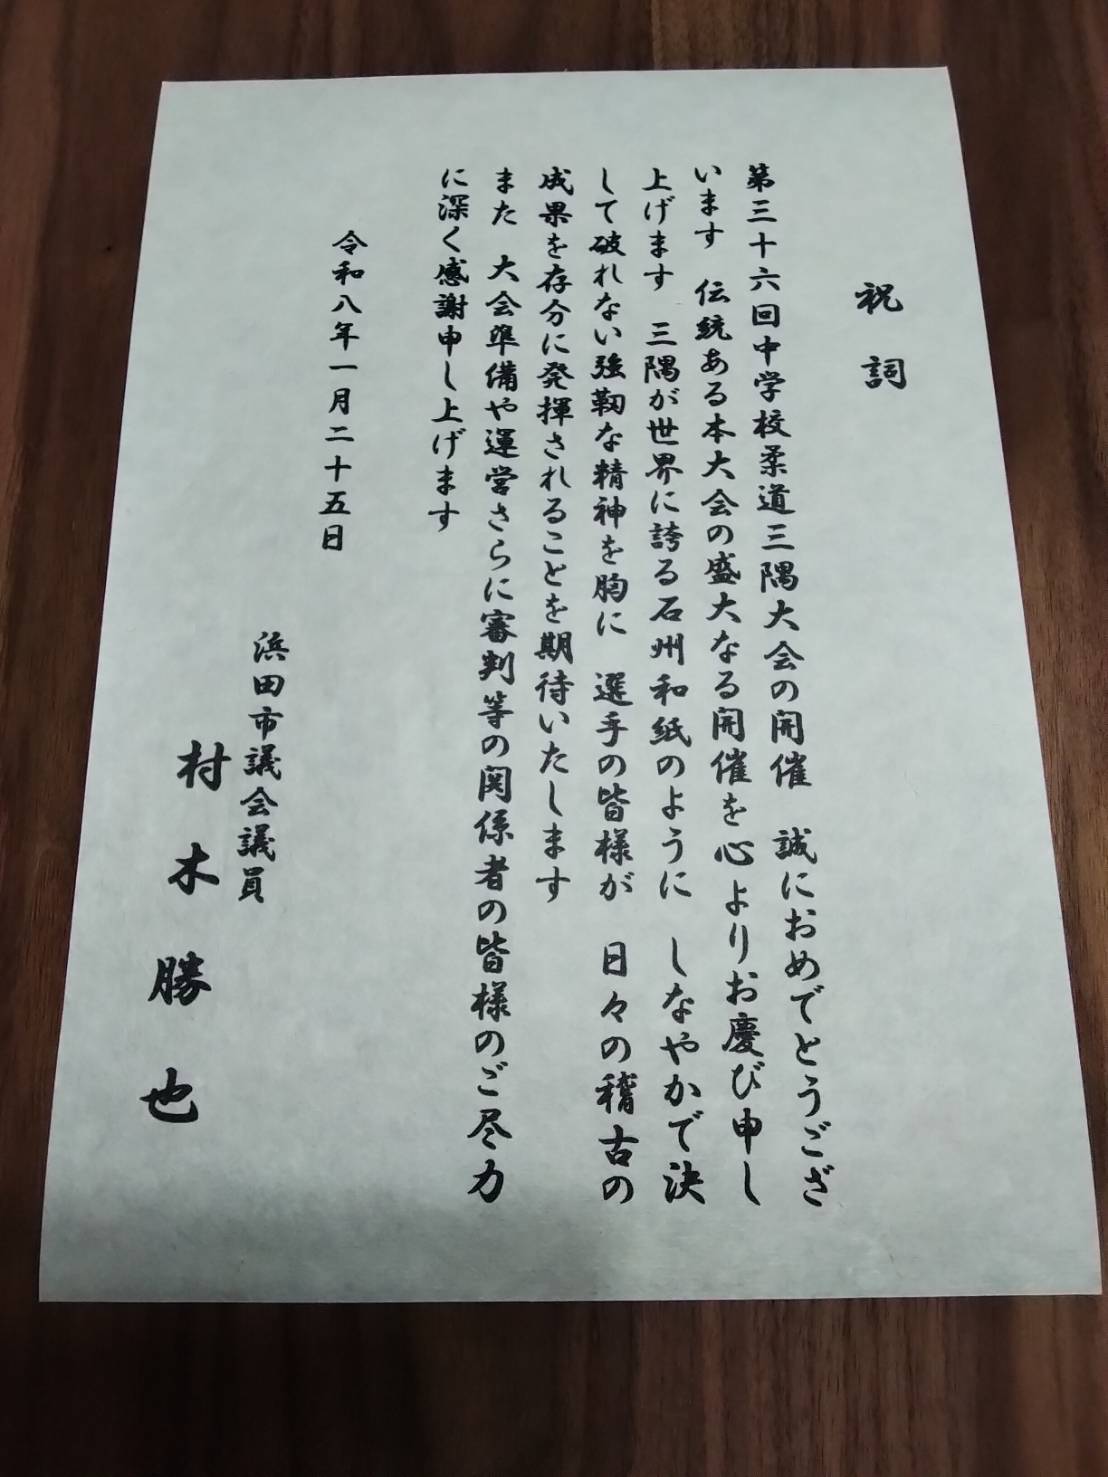 祝詞
第三十六回中学校柔道三隅大会の開催　誠におめでとうござ
います　伝統ある本大会の盛大なる開催を心よりお慶び申し
上げます　三隅が世界に誇る石州和紙のように　しなやかで決
して破れない強靭な精神を胸に　選手の皆様が　日々の稽古の
成果を存分に発揮されることを期待いたします
また　大会準備や運営さらに審判等の関係者の皆様のご尽力
に深く感謝申し上げます
令和八年一月二十五日
浜田市議会議員
村木勝也